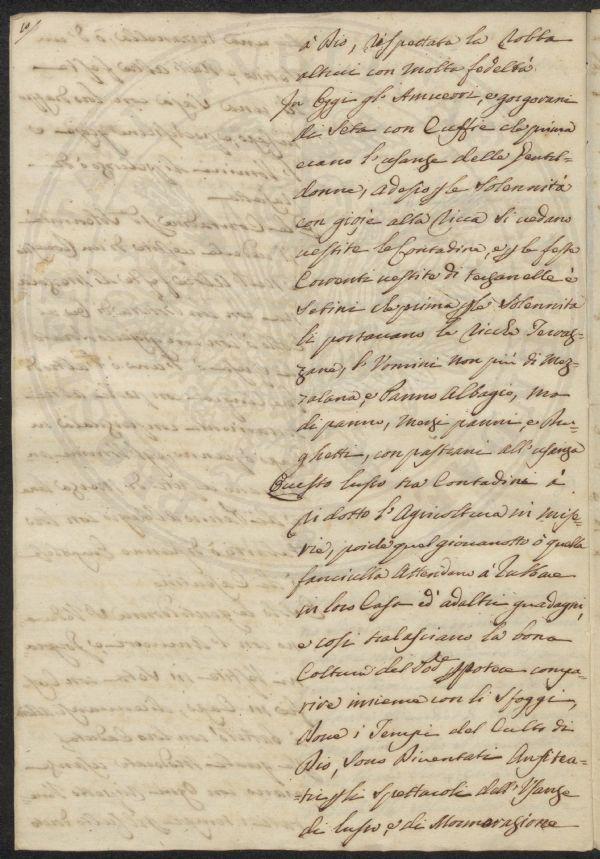 10
à Dio, rispettata la Robba
altrui con molta fedeltà
In oggi gl'Amuerri, e gorgorani
di Seta con Cuffie che prima
erano l'usanze delle Gentil-
donne, adesso p le Solennità
con gioje alla Ricca si vedano
vestite le Contadine, e p le feste
Correnti vestite di Terzanelle è
Setini che prima p le Solennità
li portavano le Ricche Terraz-
zane, l'Uomini non più di Mez-
zalana, e Panno Albagio, ma
di panno, Mezzi panni e Ru-
ghetti, con pastrani all'usanza
Questo lusso tra Contadine à
ridotto l'Agricoltura in mise-
rie, poiche quel giovanotto ò quella
fanciulla Attendano à Rubbare
in loro Casa ed' ad altri guadagni,
e così tralasciano la bona
Coltura del Pod. p poter compa-
rire insieme con li Sfoggi,
dove i Tempi del Culto di
Dio, sono Diventati Anfitea-
tri p li spettacoli dell'Usanze
di lusso, e di Mormorazione